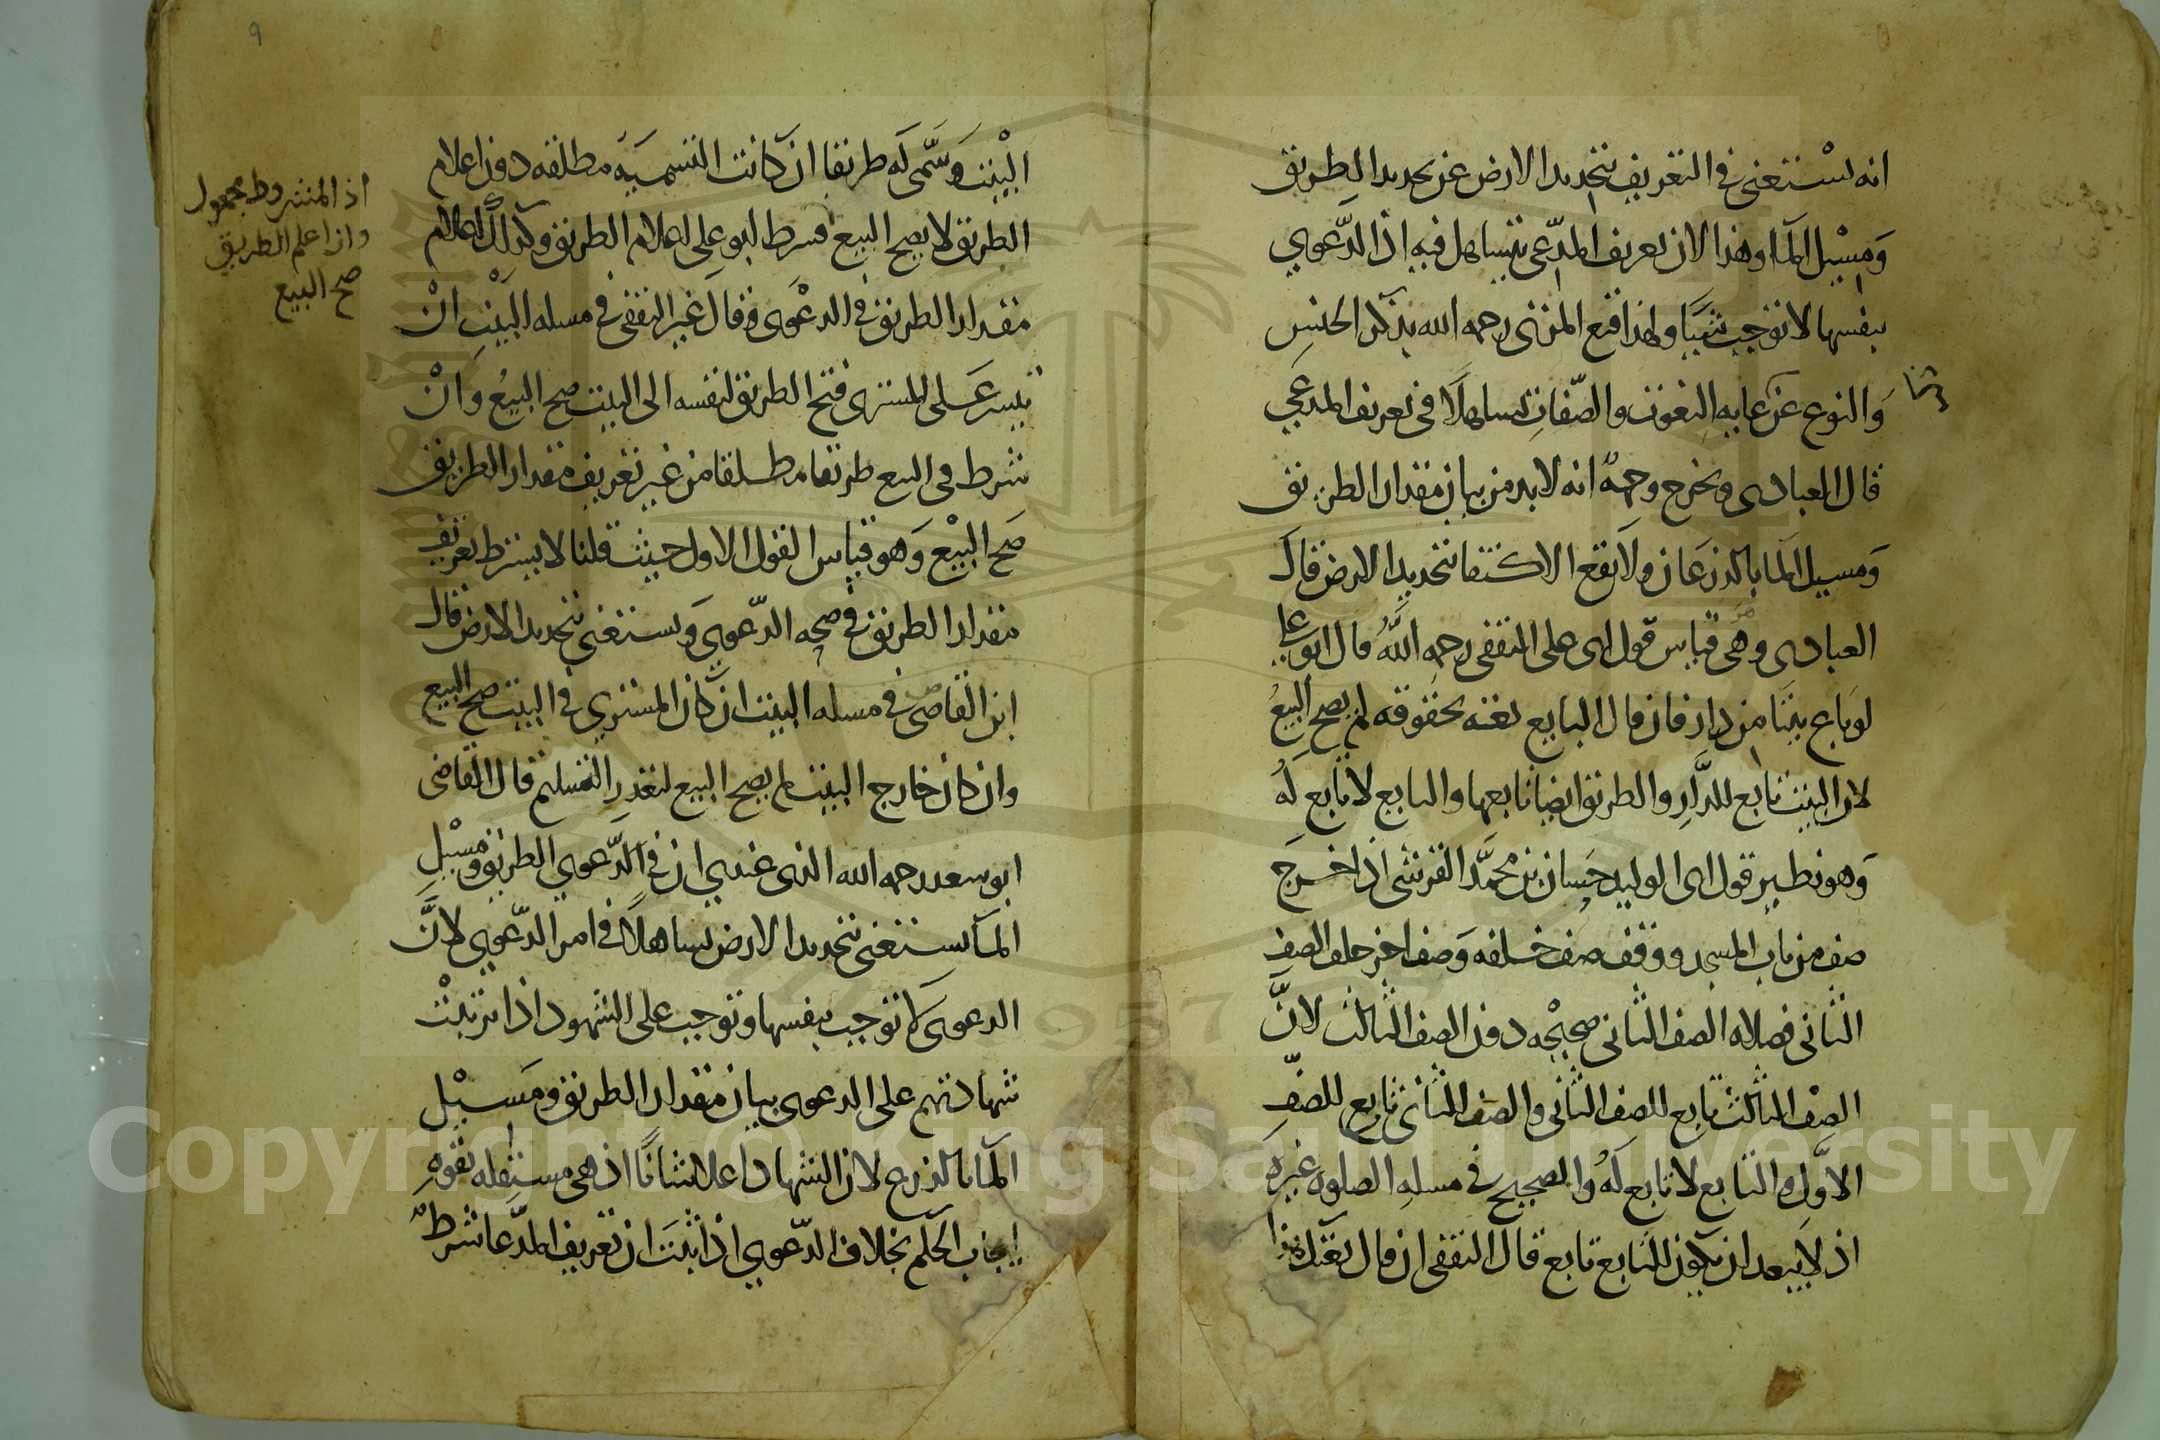 انه يستغنى في التعريف بتحديد الارض عن تحديد الطريق
وَمسِيْل الماا وهذا لان تعريف المدّعى يتساهل فيه اذ الدَّعوي
بنفسها لا توجب شيًا ولهذا قنع المزني رحمه الله بذكر الجنسِ
وَالنوع عن غايه النعوت والصّفات تساهلًا في تعريف المدعى
قال العبادى ويخرج وجهٌ انه لا بد من بيان مقدار الطريق
وَمسيل الما بالذرعان ولا يقع الاكتفا بتحديد الارض قال
العبادى وهى قياس قول ابى على الثقفى رحمه اللهُ قال ابو على
لو باع بيتًا من دار فان قال البايع بعته بحقوقه لم يصح البيعُ
لان البيت تابع للدَّارِ والطريق ايضا تابعها والتابع لا تابع لهُ
وَهو نظير قول ابى الوليد حَسان بن محمَّد القرشى اذا خرجَ
صف من باب المسجد ووقف صف خلفه وَصف اخر خلف الصفِ
الثانى فصلاه الصف الثانى صحيْحه دون الصف الثالث لانَّ
الصف الثالث تابع للصف الثانى والصف الثانى تابع للصّفِ
الاوَّل والتابع لا تابع لَهُ والصحيح في مسلهِ الصلوه غيره
اذ لا يبعد ان يكون للتابع تابع قال الثقفى ان قال بعتك هذا
البْيت وَسَّمى له طريقا ان كانت التسميَه مطلقه دون اعلام
الطريق لا يصح البيع فشرط ابو على اعلام الطريق وكذلك اعلام
مقدار الطريق في الدعْوى وقال غير الثقفى في مسله البيْتِ انْ
تيسر عَلى المشترى فتح الطريق لنفسه الى البيت صح البيعُ وَانْ
شرط في البيع طريقا مطلقا من غير تعريف مقدار الطريق
صَح البيْع وَهو قياس القول الاول حيث قلنا لا يشترط تعريف
مقدار الطريق في صحه الدّعوى وَيستغنى بتحديد الارض قال
ابن القاصّ في مسله البيت ان كان المشتري في البيت صح البيع
وان كان خارج البيت لم يصح البيع لتعذرِ التسليم قال القاضى
ابو سعد رحمه الله الذى عندي ان في الدَّعوي الطريق ومسيْل
المآ يستغنى بتحديد الارض تساهلًا في امر الدّعوي لانَّ
الدعوى لا توجب بنفسها وتوجب على الشهود اذا ترتبتْ
شهادتهم على الدعوى بيان مقدار الطريق ومَسيْل
المآ بالذرع لان الشهاده اعلا شانًا اذ هى مستقله بقوهِ
ايجاب الحكم بخلاف الدّعوي اذا ثبتَ ان تعريف المدَّعا شرطٌ
اذ المشروط مجهول
واذا علم الطريق
صح البيع
٩